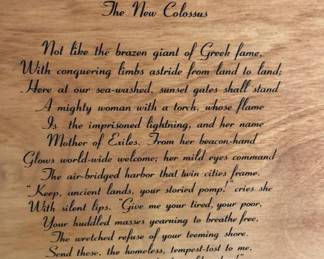 The New Colossus
Not like the brazen giant of Greek fame,
With conquering limbs astride from land to land;
Here at our sea-washed, sunset gates shall stand
A mighty woman with a torch, whose flame
Is the imprisoned lightning, and her name
Mother of Exiles. From her beacon-hand
Glows world-wide welcome; her mild eyes command
The air-bridged harbor that twin cities frame.
"Keep, ancient lands, your storied pomp!" cries she
With silent lips. "Give me your tired, your poor,
Your huddled masses yearning to breathe free,
The wretched refuse of your teeming shore.
Send these, the homeless, tempest-tost to me,